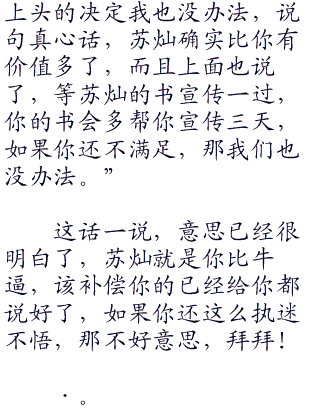 上头的决定我也没办法，说
句真心话，苏灿确实比你有
价值多了，而且上面也说
了，等苏灿的书宣传一过，
你的书会多帮你宣传三天，
如果你还不满足，那我们也
没办法。”
这话一说，意思已经很
明白了，苏灿就是你比牛
逼，该补偿你的已经给你都
说好了，如果你还这么执迷
不悟，那不好意思，拜拜！
·。